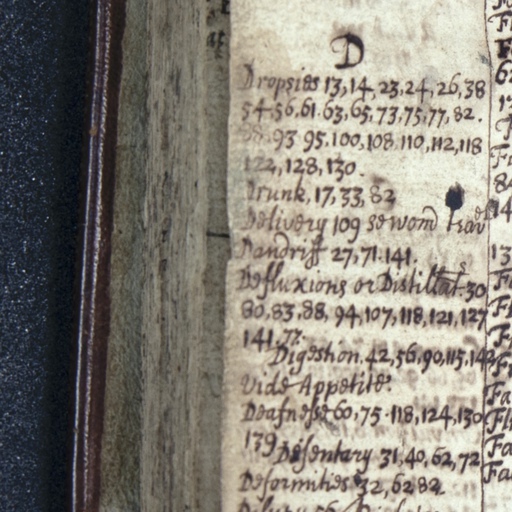 D
Dropsies 13, 14, 23, 24, 26, 38
54. 56. 61. 63, 65, 73, 75, 77, 82.
88. 93 95, 100, 108, 110, 112, 118
122, 128, 130.
Drunk, 17, 33, 82
Delivery 109 se wom̄
Dandriff 27, 71. 141.
Defluxions or Distillat. 30
80, 83, 88, 94, 107, 118, 121, 127
141. 77.
Digestion. 42, 56, 90, 115, 142
vide Appetite.
Deafnesse 60, 75. 118, 124, 130
139
Disentary 31, 40, 62, 72
Deformities 32, 62 82.